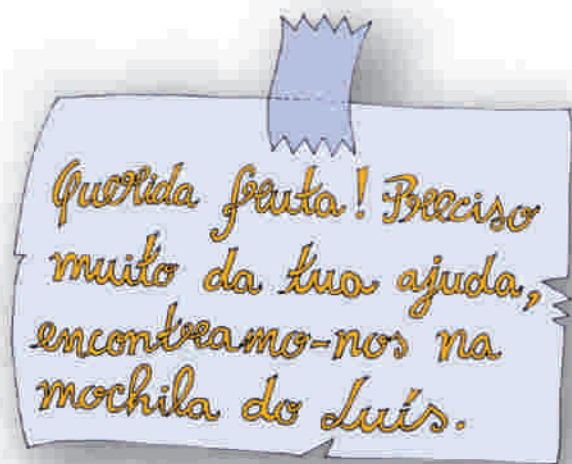 Querida fruta! Preciso
muito da tua ajuda,
encontramo-nos na
mochila do Luís.